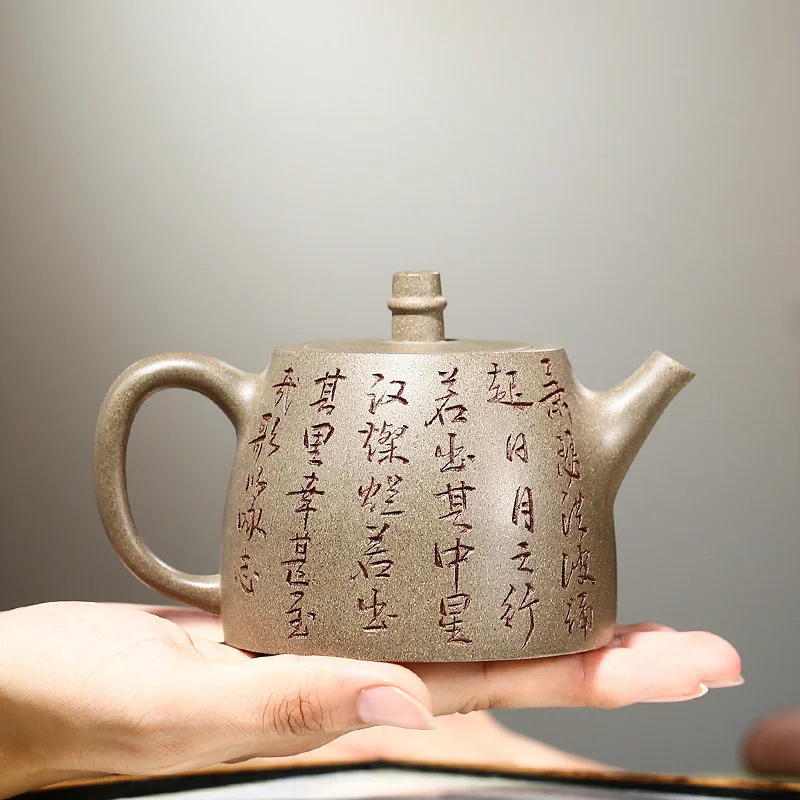 萧瑟洪波涌
起日月之行
若出其中星
汉燦烂若出
其里幸甚至
哉歌以咏志